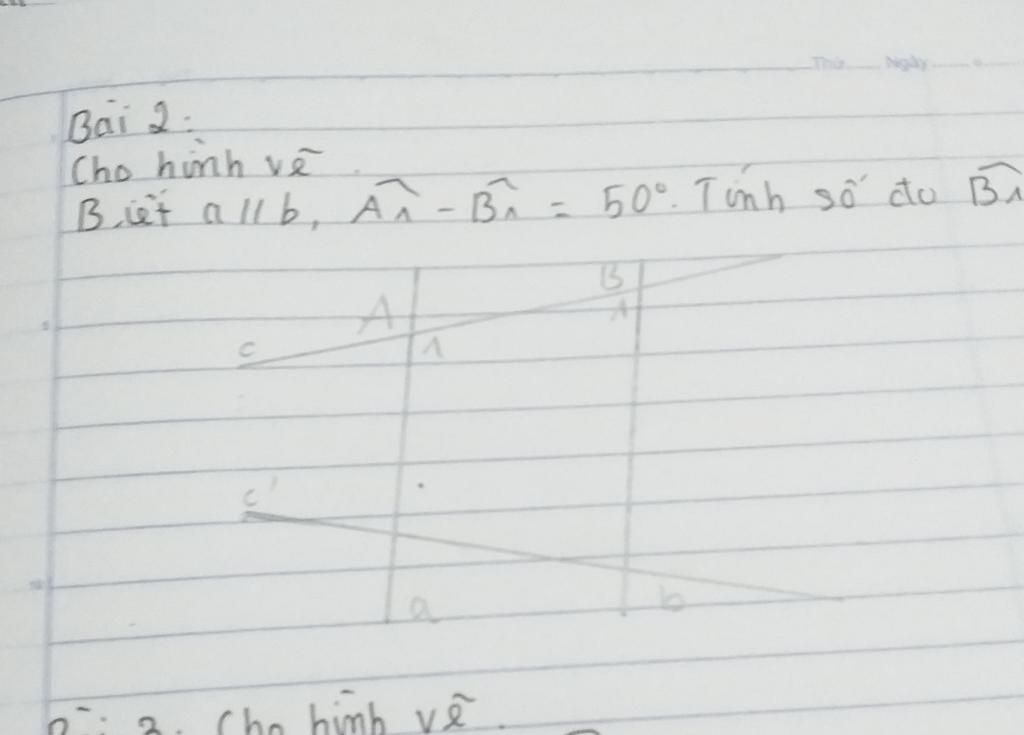 Thứ Ngày
Bài 2:
Cho hình vẽ.
Biết a // b, Â₁ - B̂₁ = 50°. Tính số đo B̂₁
A B
1
c 1
c'
a b
Bài 3. Cho hình vẽ.